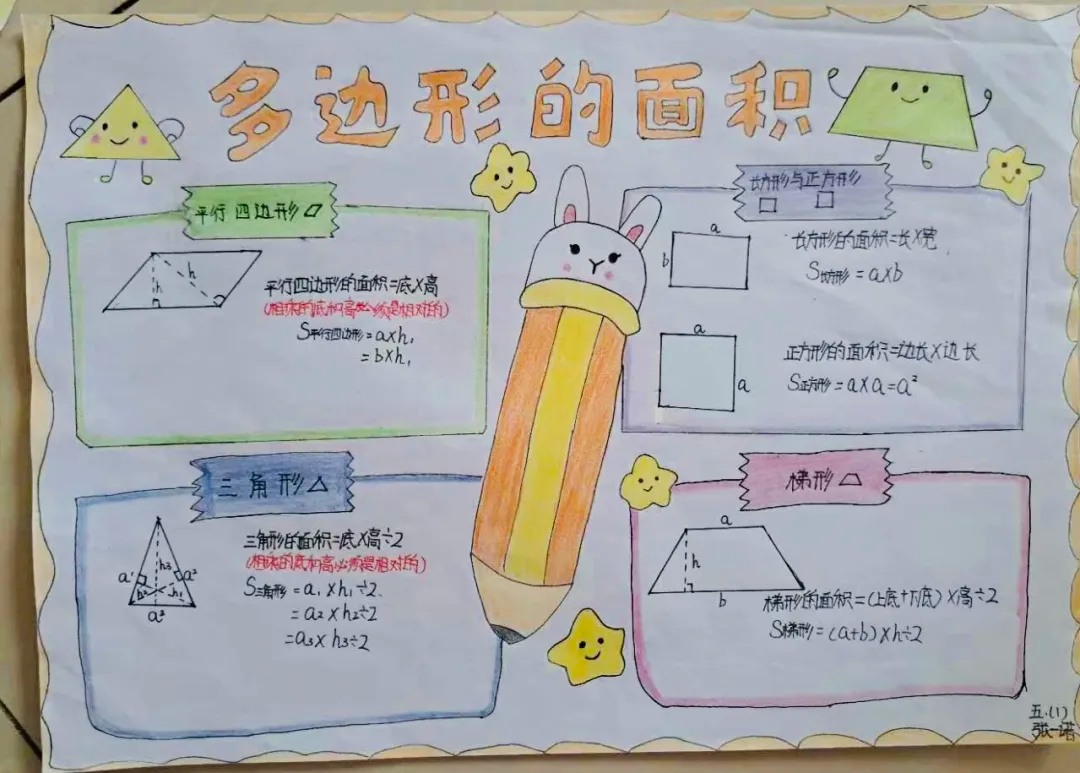 多边形的面积
平行四边形
h
h
平行四边形的面积=底×高
(相乘的底和高必须是相对的)
S平行四边形=a×h₁
=b×h₁
长方形与正方形
a
b
长方形的面积=长×宽
S长方形=a×b
a
a
正方形的面积=边长×边长
S正方形=a×a=a²
三角形
a'
h3
a²
h²
h₁
a²
三角形的面积=底×高÷2
(相乘的底和高必须是相对的)
S三角形=a₁×h₁÷2
=a₂×h₂÷2
=a₃×h₃÷2
梯形
a
h
b
梯形的面积=(上底+下底)×高÷2
S梯形=(a+b)×h÷2
五.(1)
张一诺